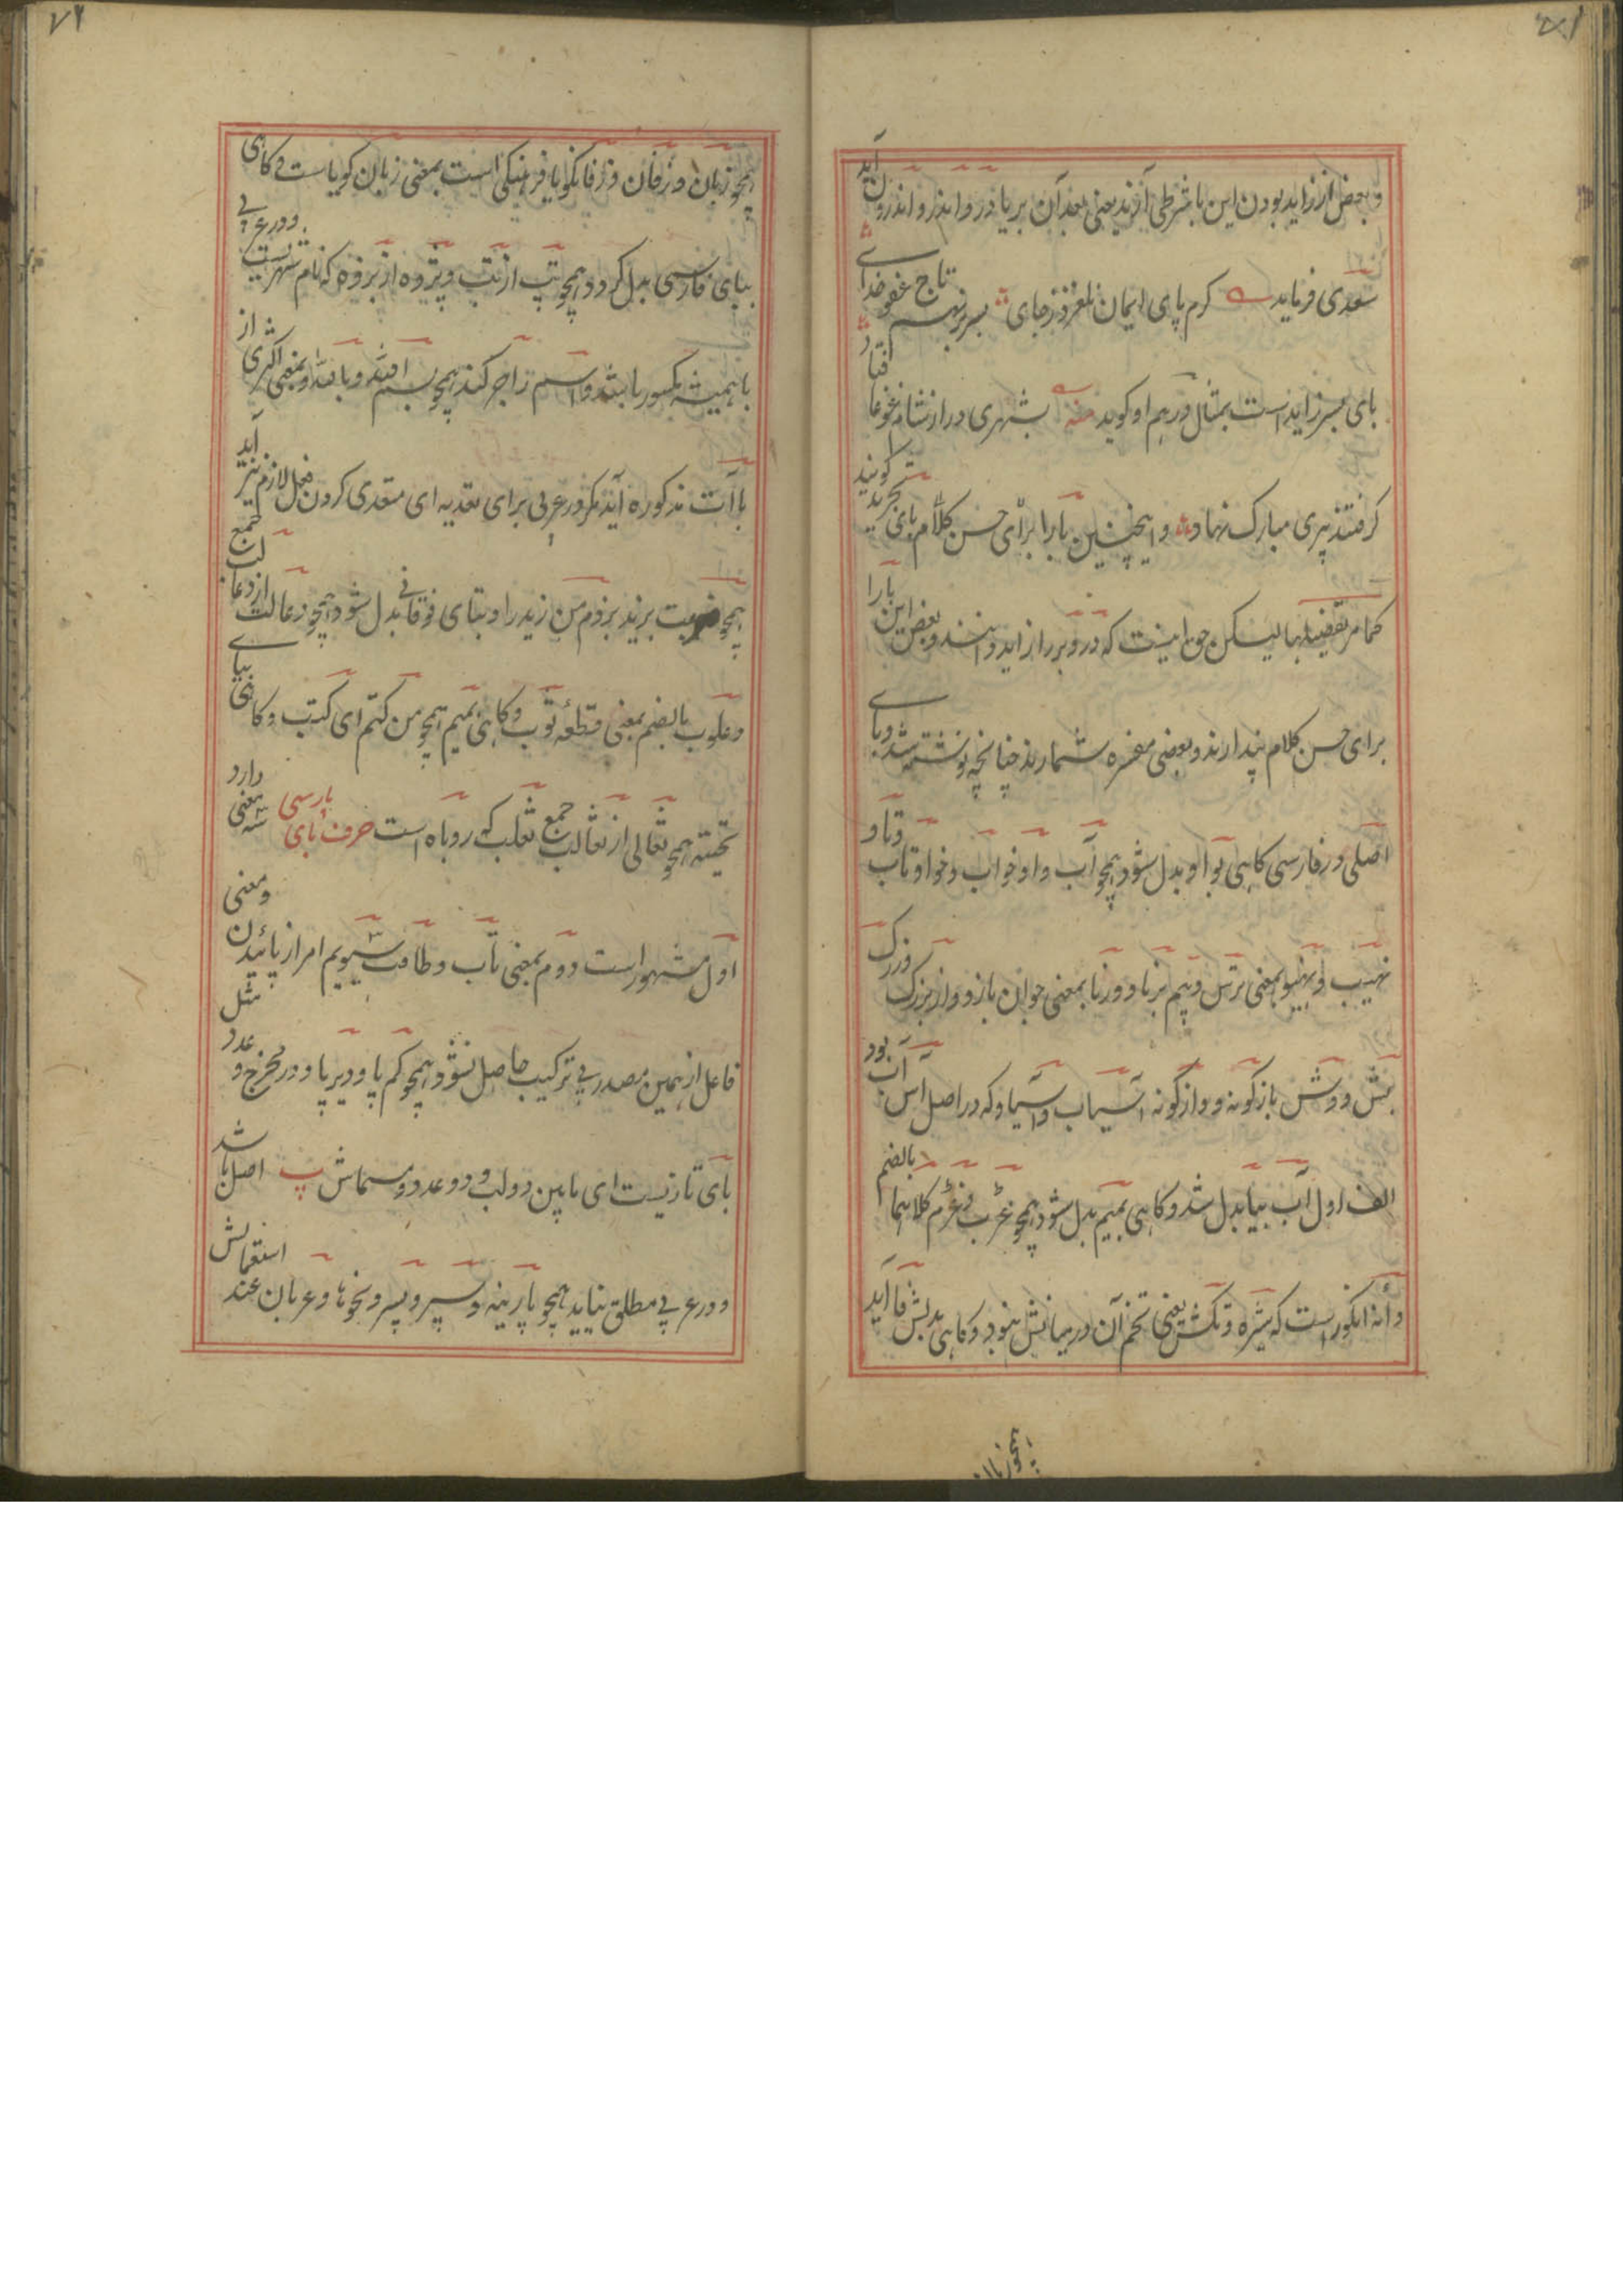 و بعض از زاید بودن این با شرطی آرند یعنی بعد آن بر یا در و اندر و اندرون آید
سعدی فرماید کرم پای ایمان نلغزد ز جای بسر بر نهم تاج عفو خدای
بای بسر زاید است بمثال در هم او کوید منه بشهری در از شام غوغا فتاد
کرفتند پیری مبارک نهاد و همچنین با را برای حسن کلام بای تجرید کویند
کما مر تفصیلها لیکن حق اینست که در و بر را زاید دانند و بعض این با را
برای حسن کلام پندارند و بعضی مفسره شمارند چنانچه نوشته شد و بای
اصلی در فارسی کاهی بواو بدل شود همچو آب و او خواب و خواو تاب و تاو
نهیب و نهیو بمعنی ترس و بیم برنا و ورنا بمعنی جوان باز و واز بزرک و وزرک
بش و وش بازکونه و واژکونه آسیاب و آسیاو که در اصل آس آب بود
الف اول آب بیا بدل شد و کاهی بمیم بدل شود همچو غرب و غرم کلاهما بالضم
دانه انکور است که شیره و تکش یعنی تخم آن در میانش نبود و کاهی بدلش فا آید
همچو زبان
همچو زبان و زفان و زفانکویا فرهنکی است بمعنی زبان کویاست و کاهی
ببای فارسی بدل کردد همچو تپ از تب و پژوه از بژوه که نام شهریست و در عربی
با همیشه مکسور باشد و اسم را جر کند همچو بسم الله و بالله و بمعنی اکثری از
باآت مذکوره آید مکر در عربی برای تعدیه ای متعدی کردن فعل لازم نیز آید
همچو ضربت بزید بزدم من زید را و بتای فوقانی بدل شود همچو دعالت از دعالب جمع
دعلوب بالضم بمعنی قطعه ثوب و کاهی بمیم همچو من کثم ای کثب و کاهی بیای
تحتیه همچو ثعالی از ثعالب جمع ثعلب که روباه است حرف بای پارسی سه معنی دارد
اول مشهور است دوم بمعنی تاب و طاقت سیوم امر از پائیدن و معنی
فاعل از همین مصدر بی ترکیب حاصل نشود همچو کم پا و دیر پا و در مخرج و عدد مثل
بای تازیست ای مابین دو لب و دو عدد و مسماش پ اصل باشد
و در عربی مطلق نیاید همچو پارینه و سپر و پسر و نحوها و عربان عند استعمالش